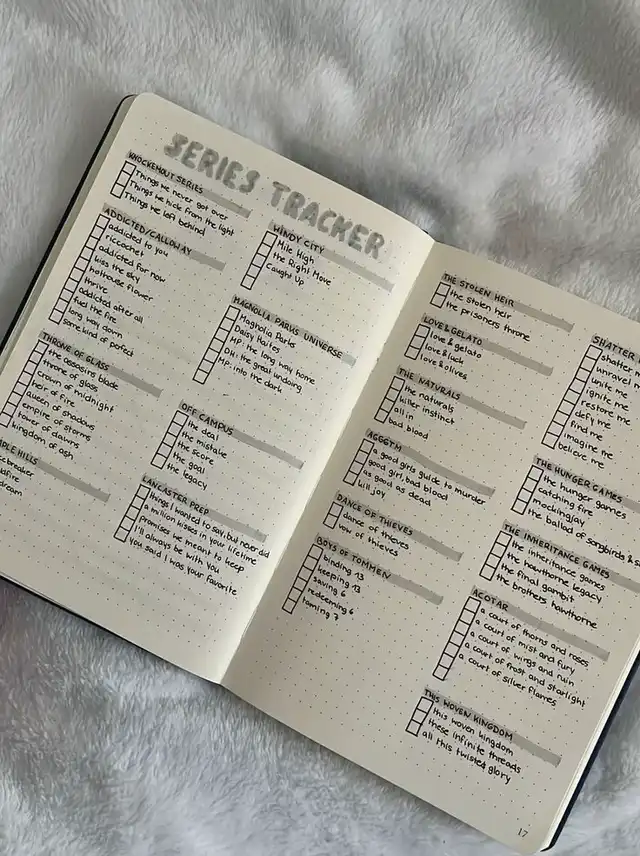 SERIES TRACKER
KNOCKEMOUT SERIES
Things we never got over
Things we hide from the light
Things we left behind
ADDICTED/CALLOWAY
addicted to you
ricochet
addicted for now
kiss the sky
hothouse flower
thrive
addicted after all
fuel the fire
long way down
some kind of perfect
THRONE OF GLASS
the assassins blade
throne of glass
crown of midnight
heir of fire
queen of shadows
empire of storms
tower of dawn
kingdom of ash
PLE HILLS
cebreaker
dfire
dream
WINDY CITY
Mile High
the Right Move
Caught Up
MAGNOLIA PARKS UNIVERSE
Magnolia Parks
Daisy Haites
MP: the long way home
DH: the great undoing
MP: into the dark
OFF CAMPUS
the deal
the mistake
the score
the goal
the legacy
LANCASTER PREP
things I wanted to say, but never did
a million kisses in your lifetime
promises we meant to keep
I'll always be with you
you said I was your favorite
THE STOLEN HEIR
the stolen heir
the prisoners throne
LOVE & GELATO
love & gelato
love & luck
love & olives
THE NATURALS
the naturals
killer instinct
all in
bad blood
AGGGTM
a good girls guide to murder
good girl, bad blood
as good as dead
kill joy
DANCE OF THIEVES
dance of thieves
vow of thieves
BOYS OF TOMMEN
binding 13
keeping 13
saving 6
redeeming 6
taming 7
SHATTER
shatter m
unravel
unite me
ignite me
restore me
defy me
find me
imagine me
believe me
THE HUNGER GAMES
the hunger games
catching fire
mockingjay
the ballad of songbirds & s
THE INHERITANCE GAMES
the inheritance games
the hawthorne legacy
the final gambit
the brothers hawthorne
ACOTAR
a court of thorns and roses
a court of mist and fury
a court of wings and ruin
a court of frost and starlight
a court of silver flames
THIS WOVEN KINGDOM
this woven kingdom
these infinite threads
all this twisted glory
17